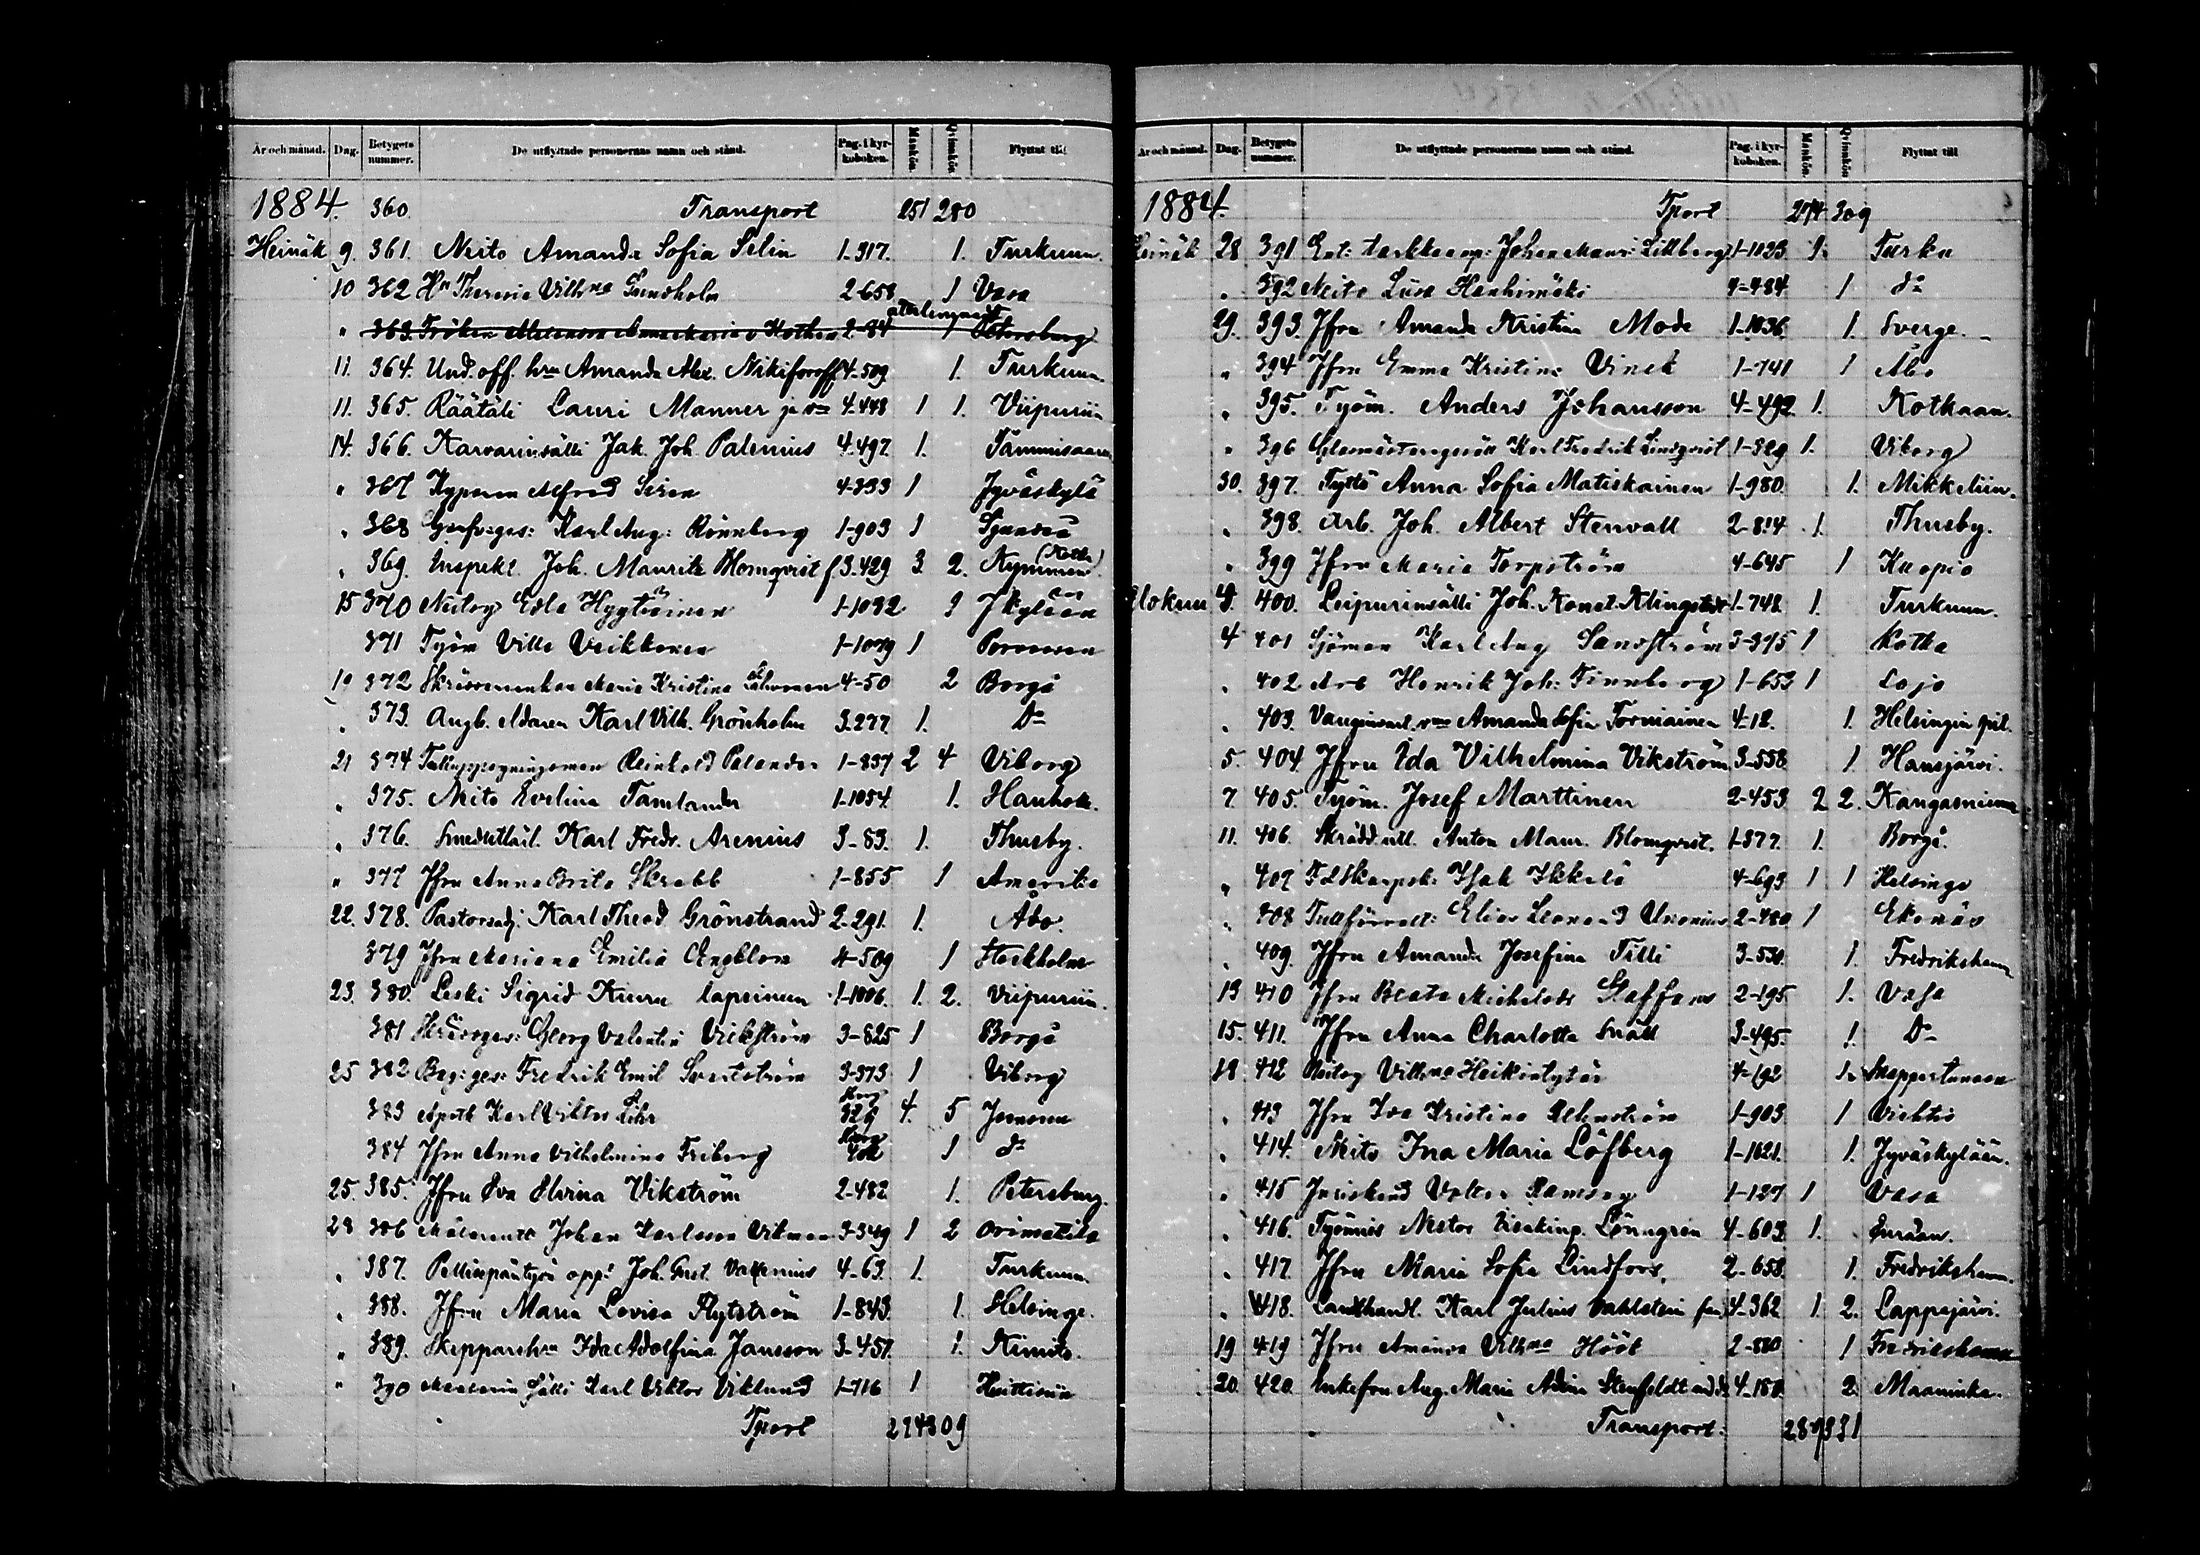 År och månad. Dag. Betygets nummer. De utflyttade personernas namn och stånd. Pag. i kyrkoboken. Mankön. Qvinnkön. Flyttat till
1884. 360. Transport 251 280
Heinäk 9. 361. Neito Amanda Sofia Selin 1-317. 1. Turkuun.
10 362 Hn Theresia Vilhna Sundholm 2-658 1 Vasa
återlemnadt
" 363. Fröken Anna Maria v Kothen 2-84 1 Petersburg
11. 364. Und. off. hru Amanda Alex. Nikiforoff 4-509 1. Turkuun.
11. 365. Räätäli Lauri Manner ja vmo 4-448 1 1. Viipuriin
14. 366. Karvarinsälli Jak. Joh. Palenius 4-497. 1. Tammisaaren
" 367 Kyparen Alfred Siren 4-333 1 Jyväskylä
" 368 Karl Aug: Rönnberg 1-903 1 Sjundeå
" 369. Inspekt. Joh. Mauritz Blomqvist f 3-429 3 2. Kymmene (Kotka)
15 370 Neitsy Edla Hygtiäinen 1-1092 1 Jkylään
371 Työm Ville Veikkonen 1-1079 1 Porvoosen
19 372 Maria Kristina 4-50 2 Borgå
" 373. Ångb. eldaren Karl Vilh. Grönholm 3-277. 1. Do
21 374 Tulluppsyningsman Reinhold Palander 1-837 2 4 Viborg
" 375. Neito Evelina Tamlander 1-1054. 1. Hauhole.
" 376. Smedutlärl. Karl Fredr. Arenius 3-83. 1. Thusby.
" 377 Jfru Anna Brita Skrabb 1-855 1 Amerika
22. 378. Pastorsadj. Karl Theod Grönstrand 2-291. 1. Åbo.
379 Jfru Mariana Emilia Engblom 4-509 1 Stockholm
23. 380. Leski Sigrid Kuura lapsineen 1-1006. 1. 2. Viipuriin.
381 Georg Valentin Vickström 3-825 1 Borgå
25 382 Bag: ges: Fredrik Emil Svartström 3-373 1 Viborg
383 Apoth Karl Viktor Lihr 329 4. 5 Jomala
384 Jfru Anna Vilhelmina Friberg 1 do
25. 385. Jfru Eva Elvira Vikström 2-482 1. Petersburg.
28 386 Johan Karlsson Vikman 3-349 1 2 Orimattila
" 387. Joh. Gust. Vallenius 4-63. 1. Turkuun.
" 388. Jfru Maria Lovisa Flytström 1-843. 1. Helsinge.
" 389. Skepparehru Ida Adolfina Jansson 3-457. 1. Kimito.
" 390 Karl Viktor Viklund 1-716 1 Huittisiin
Tport 274 309
År och månad. Dag. Betygets nummer. De utflyttade personernas namn och stånd. Pag. i kyrkoboken. Mankön Qvinnkön Flyttat till
1884. Tport 274 309
Heinäk 28 391 Johan Maur: Lillberg 1-1033 1. Turku
" 392 Neito Lisa Hanhimäki 4-484 1 do
29. 393. Jfru Amanda Kristina Mode 1-1036. 1. Sverge.
" 394 Jfru Emma Kristina Vinck 1-741 1 Åbo
" 395. Työm. Anders Johansson 4-492 1. Kotkaan.
" 396 Glasmästaregesäll Karl Fredrik Lindqvist 1-329 1. Viborg
30. 397. Tyttö Anna Sofia Matiskainen 1-980. 1. Mikkeliin.
" 398. Arb. Joh. Albert Stenvall 2-814 1. Thusby.
" 399 Jfru Maria Torpström 4-645 1 Kuopio
Elokuu 400. Leipurinsälli Joh. Konst. Klingstedt 1-748. 1. Turkuun.
4 401 Sjöman Karl Aug Sandström 3-375 1 Kotka
" 402 Arb Henrik Joh: Finnberg 1-653 1 Lojo
" 403. Amanda Sofia Torniainen 4-12. 1. Helsingin pit.
5. 404. Jfru Ida Vilhelmina Vikström 3-558. 1. Hausjärvi.
7. 405. Työm. Josef Marttinen 2-453 2 2. Kangasniemi
11. 406. Skräddutl. Anton Maur. Blomqvist. 1-377. 1. Borgå.
" 407 Isak Ikkelä 4-693 1 1 Helsinge
" 408 Elias Leonard Unonius 2-480 1 Ekenäs
" 409. Jfru Amanda Josefina Tilli 3-530. 1. Fredrikshamn
13 410 Jfru Beata Michelsdr Staffans 2-195 1. Vasa
15. 411. Jfru Anna Charlotta Snäll 3-495. 1. Do
18 412 Neitsy Vilhna Heikintytär 4-192 1.
" 413 Jfru Ida Kristina Rehnström 1-903 1 Vichtis
" 414. Neito Ina Maria Löfberg 1-1021. 1. Jyväskylään.
" 415 Valter Ramsay 1-127 1 Vasa
" 416. Työmies Nestor Lönngren 4-603 1.
" 417. Jfru Maria Sofia Lindfors, 2-658. 1. Fredrikshamn.
" 418. Landthandl. Karl Julius Vahlstein fam. 4-362 1. 2. Lappajärvi.
19 419 Jfru Amanda Vilhna Höök 2-880 1 Fredrikshamn
20. 420. Enkefru Aug. Maria Adina Stenfeldt 4-180. 2. Maaninka.
Transport. 287 331